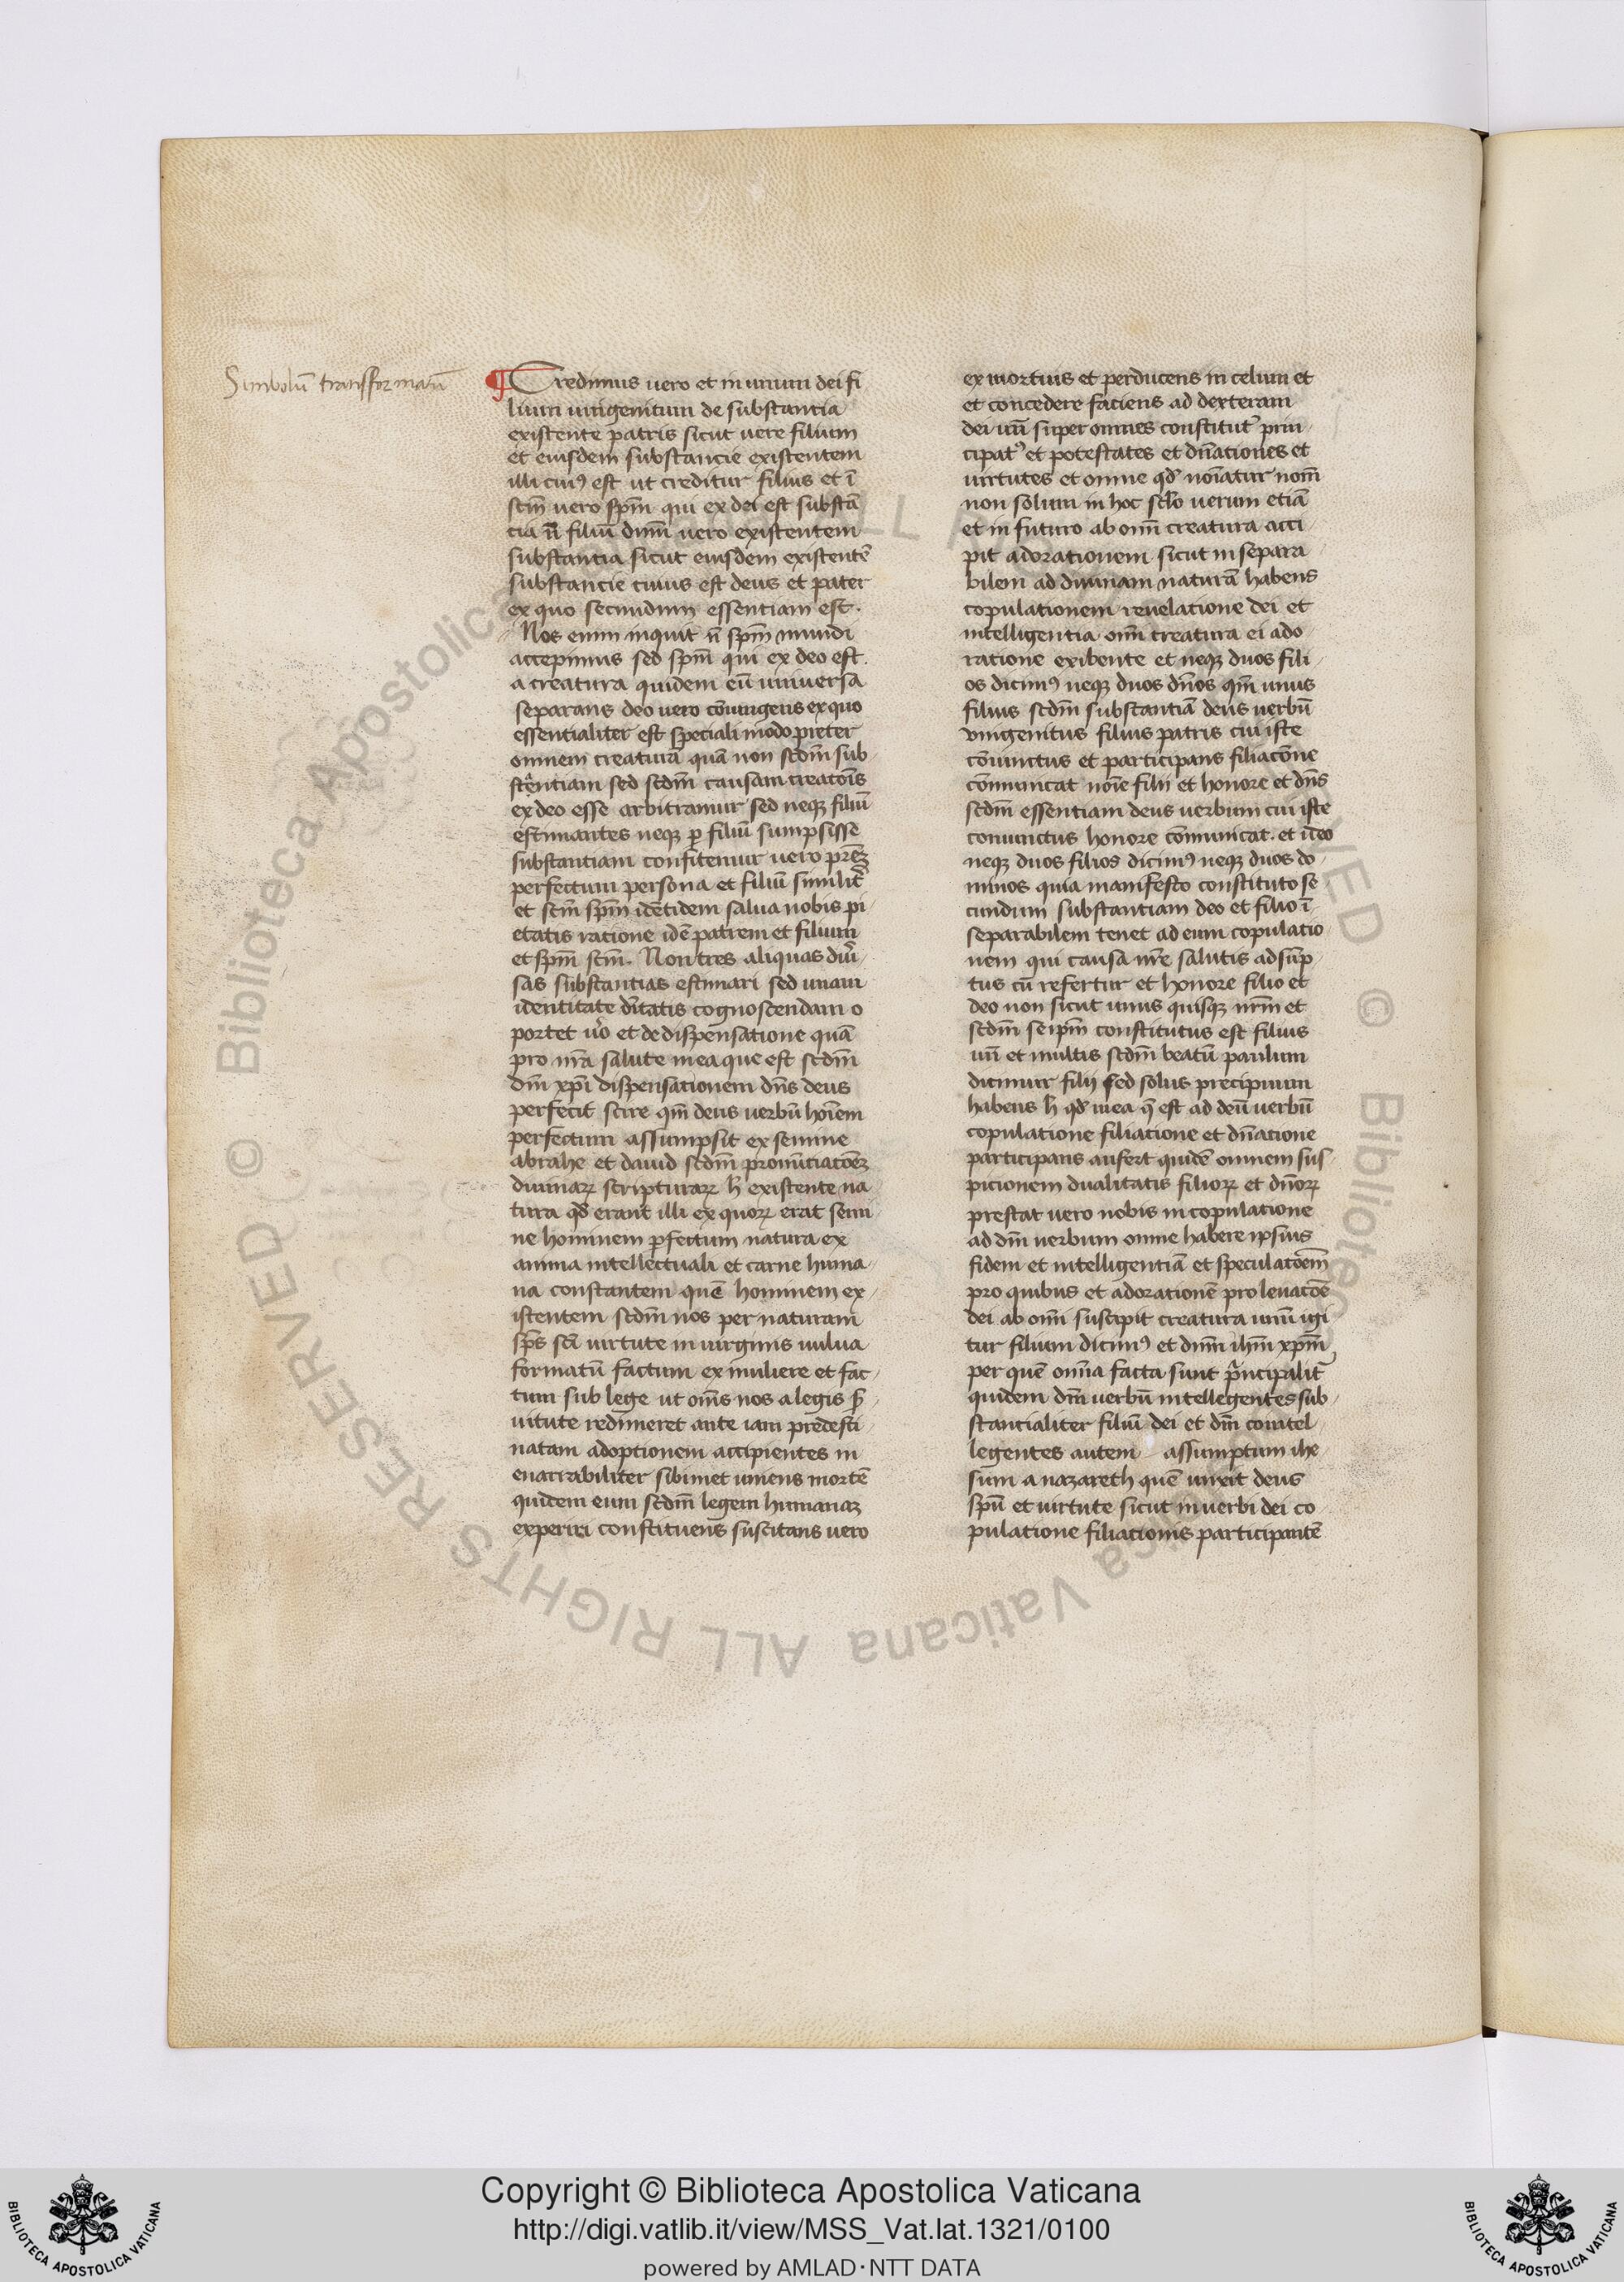 Simbolū transformatū
Credimus uero et in unum dei fi
lium unigenitum de substantia
existente patris sicut uere filium
et eiusdem substancie existentem
illi cuiꝰ est ut creditur filius et ī
scm̄ uero spm̄ qui ex dei est substā
cia n̄ filiū dnm̄ uero existentem
substantia sicut eiusdem existentē
substancie cuius est deus et pater
ex quo secundum essentiam est.
Nos enim inquit n̄ spm̄ mundi
accepimus sed spm̄ qui ex deo est.
a creatura quidem eū uniuersa
separans deo uero cōiungens ex quo
essentialiter est speciali modo preter
omnem creaturā quā non scdm̄ sub
stentiam sed scdm̄ causam creatōis
ex deo esse arbitramur sed neqꝫ filiū
estimantes neqꝫ ꝑ filiū sumpsisse
substantiam confitemur uero prēꝫ
perfectum persona et filiū similit̄
et scm̄ spm̄ idētidem salua nobis pi
etatis ratione idē patrem et filium
et spm̄ scm̄. Non tres aliquas diu̾
sas substantias estimari sed unam
identitate dītatis cognoscendam o
portet uo̾ et de dispensatione quā
pro nr̄a salute mea que est scdm̄
dm̄ xpī dispensationem dn̄s deus
perfecit scire qm̄ deus uerbū hoīem
perfectum assumpsit ex semine
abrahe et dauid scdm̄ pronūtiacōeꝫ
diuinaꝝ scripturaꝝ h̄ existente na
tura qd̄ erant illi ex quoꝝ erat semi
ne hominem ꝑfectum natura ex
anima intellectuali et carne huma
na constantem quē hominem ex
istentem scdm̄ nos per naturam
sp̄s scī virtute in uirginis uulua
formatū factum ex muliere et fac
tum sub lege ut om̄s nos a legis s̾
uitute redimeret ante iam predesti
natam adoptionem accipientes in
enarrabiliter sibimet uniens mortē
quidem eum scdm̄ legem humanaꝫ
experiri constituens suscitans uero
ex mortuis et perducens in celum et
et concedere faciens ad dexteram
dei un̄ super omnes constitut̾ prin
cipatꝰ et potestates et dn̄ationes et
uirtutes et omne qd̄ noīatur nom̄
non solum in hoc sclo̅ uerum etiā
et in futuro ab omī creatura acci
pit adorationem sicut insepara
bilem ad diuinam naturā habens
copulationem reuelatione dei et
intelligentia omī creatura ei ado
ratione exibente et neqꝫ duos fili
os dicimꝰ neqꝫ duos dn̄os qm̄ unus
filius scdm̄ substantiā deus uerbū
vnigenitus filius patris cui iste
cōiunctus et participans filiacōne
cōmunicat noīe filii et honore et dn̄s
scdm̄ essentiam deus uerbum cui iste
coniunctus honore cōmunicat. et ideo
neqꝫ duos filios dicimꝰ neqꝫ duos do
minos quia manifesto constituto se
cundum substantiam deo et filio ī
separabilem tenet ad eum copulatio
nem qui causa nr̄e salutis adsūp
tus cū refertur et honore filio et
deo non sicut unus quisqꝫ nr̄m et
scdm̄ seipm̄ constitutus est filius
un̄ et multis scdm̄ beatū paulum
dicimur filij sed solus precipuum
habens h̄ qd̄ mea q̄ est ad deū uerbū
copulatione filiatione et dn̄atione
participans aufert quidē omnem sus
picionem dualitatis filioꝝ et dn̄oꝝ
prestat uero nobis in copulatione
ad dm̄ uerbum omne habere ipsius
fidem et intelligentiā et speculacōem
pro quibus et adorationē pro leuacōe
dei ab omī suscipit creatura unū igi
tur filium dicimꝰ et dnm̄ ihm̄ xpm̄
per quē omīa facta sunt pͥncipalit̄
quidem dm̄ uerbū intellegentes sub
stantialiter filiū dei et dm̄ cointel
legentes autem assumptum ihe
sum a nazareth quē unxit deus
spū et uirtute sicut in uerbi dei co
pulatione filiacionis participantē
Copyright © Biblioteca Apostolica Vaticana
http://digi.vatlib.it/view/MSS_Vat.lat.1321/0100
powered by AMLAD·NTT DATA
BIBLIOTECA APOSTOLICA VATICANA
BIBLIOTECA APOSTOLICA VATICANA
© Biblioteca Apostolica Vaticana ALL RIGHTS RESERVED